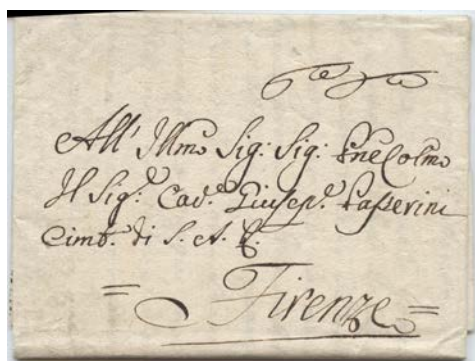 All' Illmo Sig: Sig: Pne Colmo
Il Sig.e Cav.e Giusep.e Passerini
Cimb.o di S. A. R.
= Firenze =